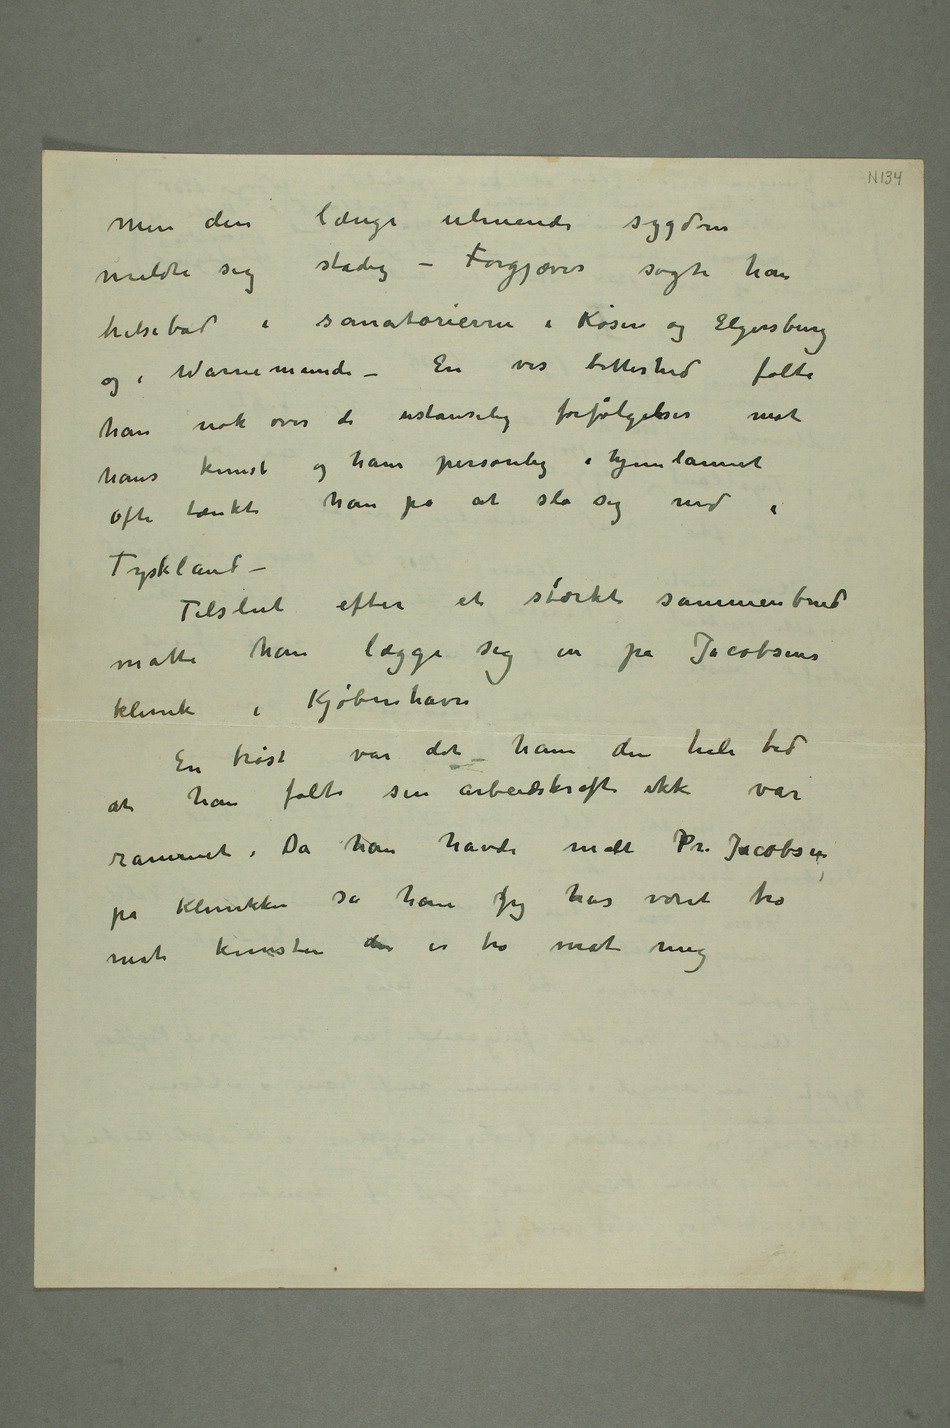 N 134
Men den længe ulmende sygdom
meldte sig stadig – Forgjæves søgte han
helsebad i sanatorierne i Køsen og Elgersburg
og i Warnemünde – En vis bitterhed følte
han nok over de ustanselig forfølgelser mot
hans kunst og ham personlig i hjemlannet
Ofte tænkte han på at slå sig ned i
Tyskland –
Tilslut efter et stærkt sammenbrud
måtte han lægge sig in på Jacobsens
klinik i Kjøbenhavn
En trøst var det ham den hele tid
at han følte sin arbeidskraft ikke var
rammet. Da han havde malt Pr. Jacobsen
på Klinikken sa han Jeg har været tro
mot kunsten den er tro mot mig